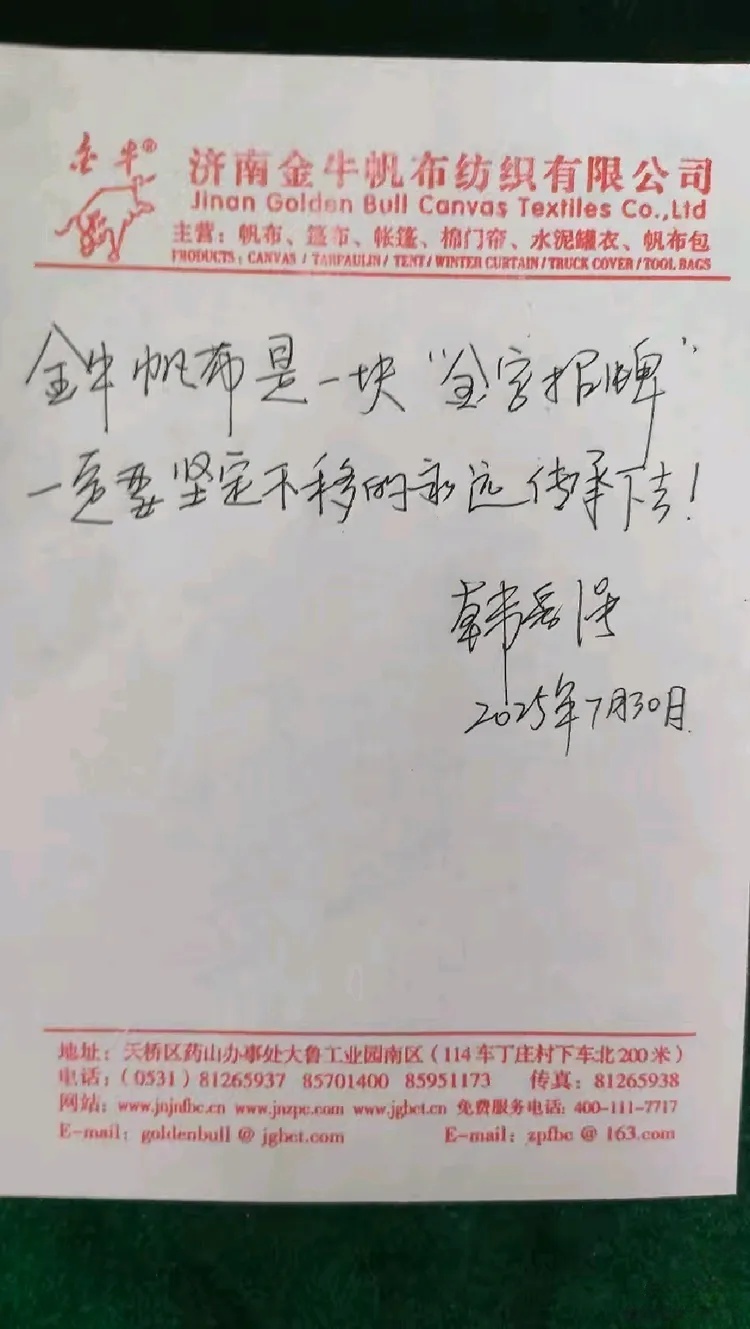 金牛®
济南金牛帆布纺织有限公司
Jinan Golden Bull Canvas Textiles Co.,Ltd
主营：帆布、篷布、帐篷、棉门帘、水泥罐衣、帆布包
PRODUCTS：CANVAS / TARPAULIN / TENT / WINTER CURTAIN / TRUCK COVER / TOOL BAGS
金牛帆布是一块“金字招牌”
一定要坚定不移的永远传承下去！
韩
2025年7月30日
地址：天桥区药山办事处大鲁工业园南区（114车丁庄村下车北200米）
电话：（0531）81265937 85701400 85951173 传真：81265938
网站：www.jnjnfbc.cn www.jnzpc.com www.jgbct.cn 免费服务电话：400-111-7717
E-mail：goldenbull @ jgbct.com E-mail：zpfbc @ 163.com